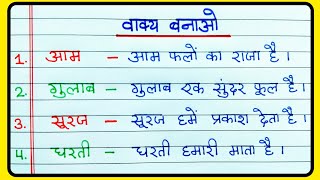 वाक्य बनाओ
1. आम – आम फलों का राजा है ।
2. गुलाब – गुलाब एक सुंदर फूल है ।
3. सूरज – सूरज हमें प्रकाश देता है ।
4. धरती – धरती हमारी माता है ।